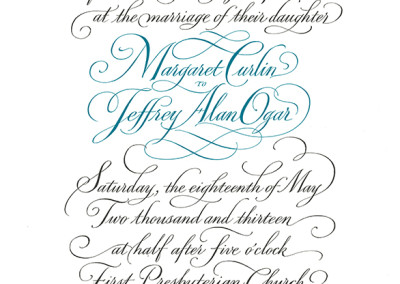 at the marriage of their daughter
Margaret Curlin
to
Jeffrey Alan Ogar
Saturday, the eighteenth of May
Two thousand and thirteen
at half after five o'clock
First Presbyterian Church